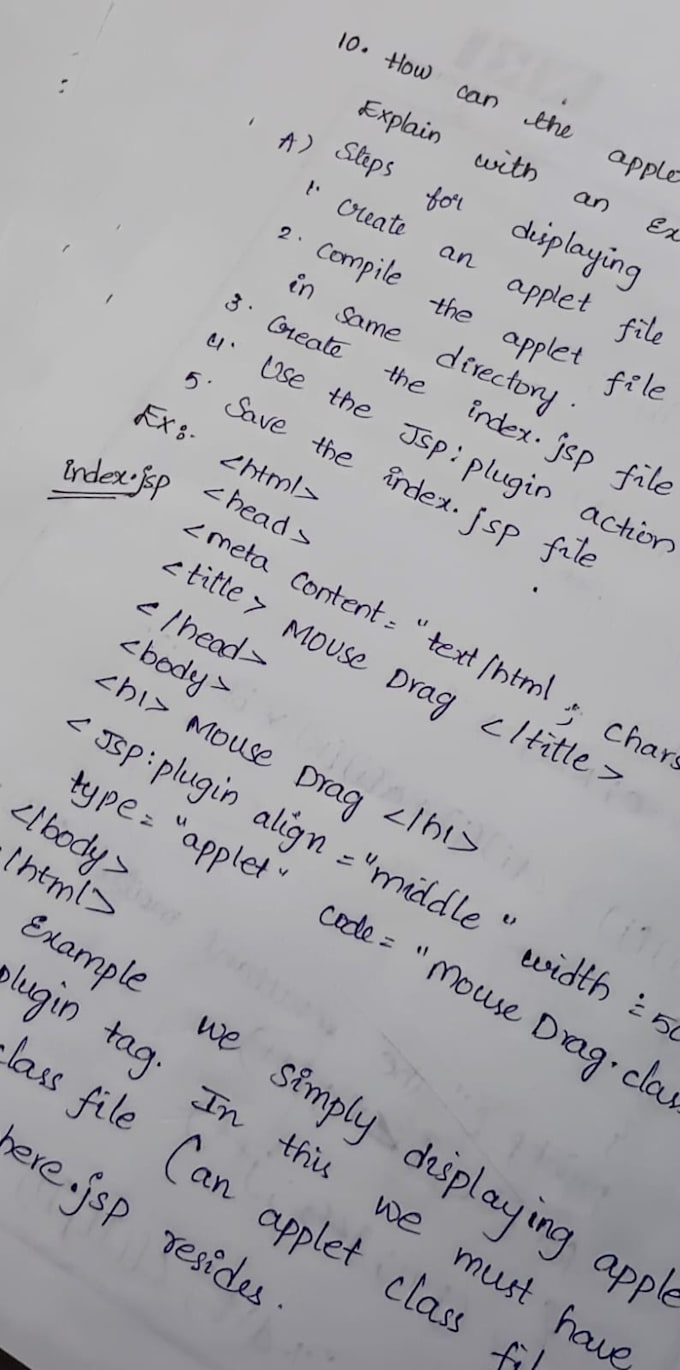 10. How can the apple
Explain with an Ex
A) Steps for displaying
1. Create an applet file
2. Compile the applet file
in same directory.
3. Create the index.jsp file
4. Use the Jsp:plugin action
5. Save the index.jsp file
Ex:-
index.jsp
<html>
<head>
<meta content="text/html; Chars
<title> Mouse Drag </title>
</head>
<body>
<h1> Mouse Drag </h1>
<Jsp:plugin align="middle" width=50
type="applet" code="Mouse Drag.clas
</body>
/html>
Example we simply displaying apple
plugin tag. In this we must have
class file (an applet class fil
here.jsp resides.